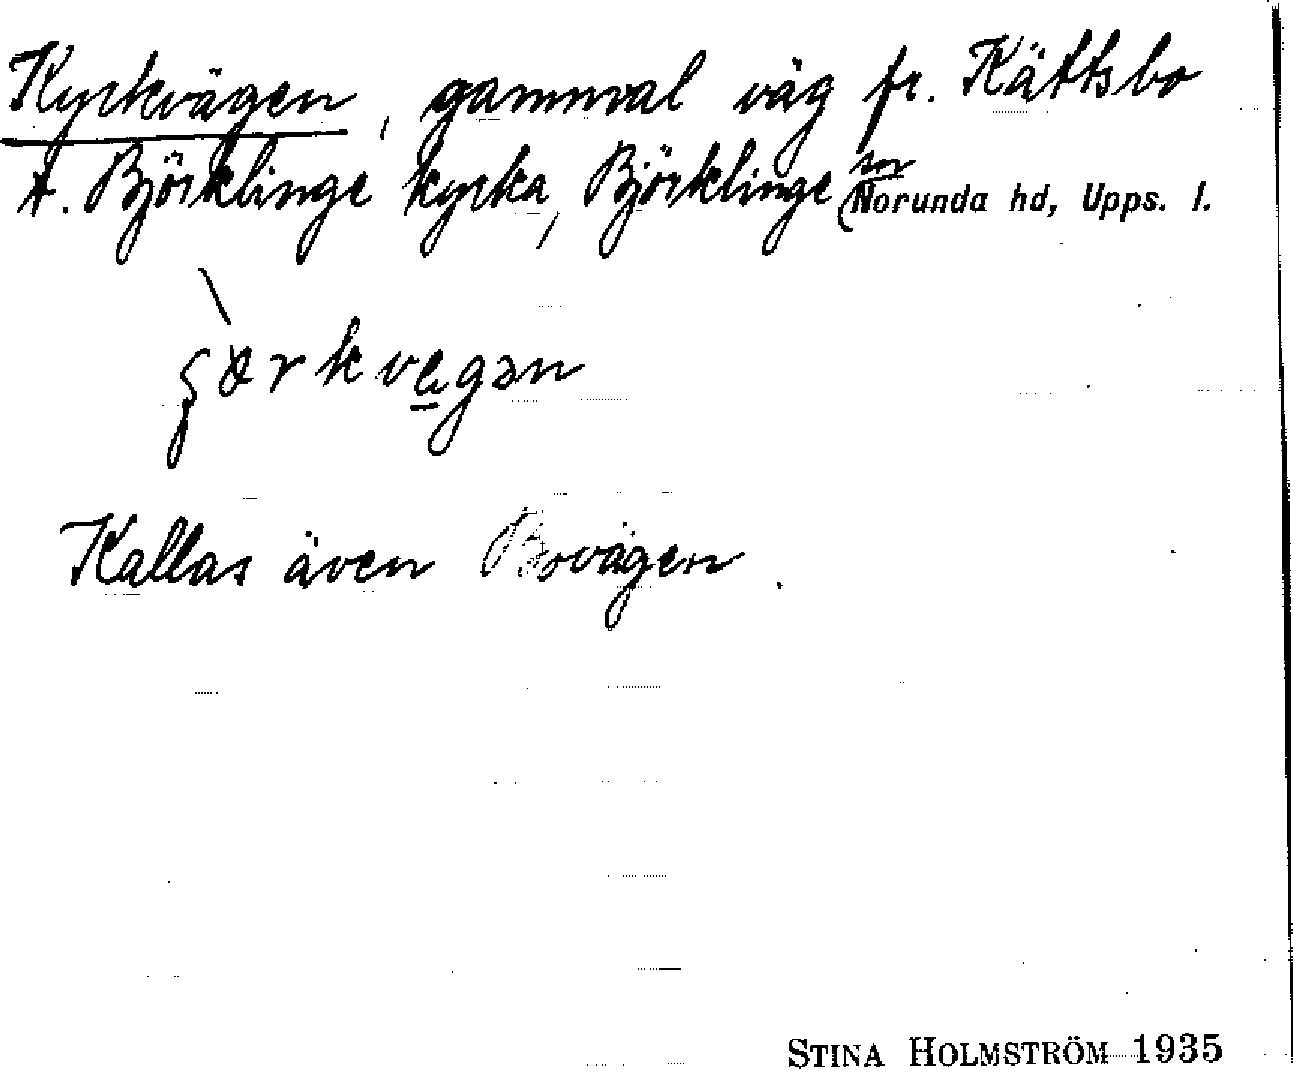 Kyrkvägen, gammal väg fr. Kättsbo
t. Björklinge kyrka, Björklinge sn
Norunda hd, Upps. l.
Kallas även Bovägen.
STINA HOLMSTRÖM 1935